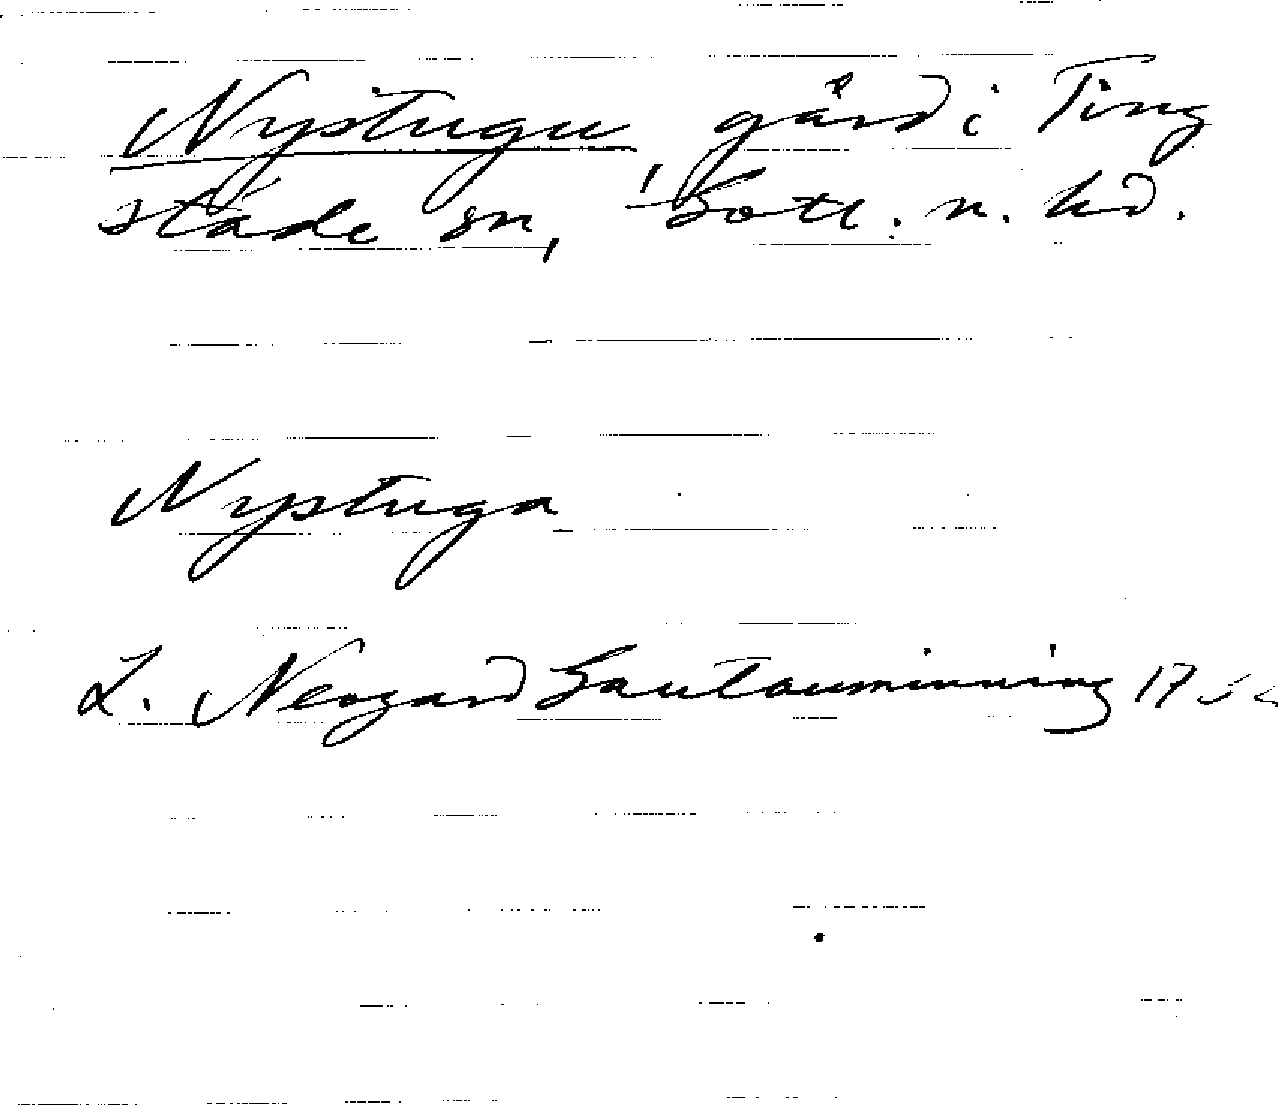 Nystugu gård i Ting
städe sn, Gotl. n. hd.
Nystuga
L. Neogard Gautauminning 1732